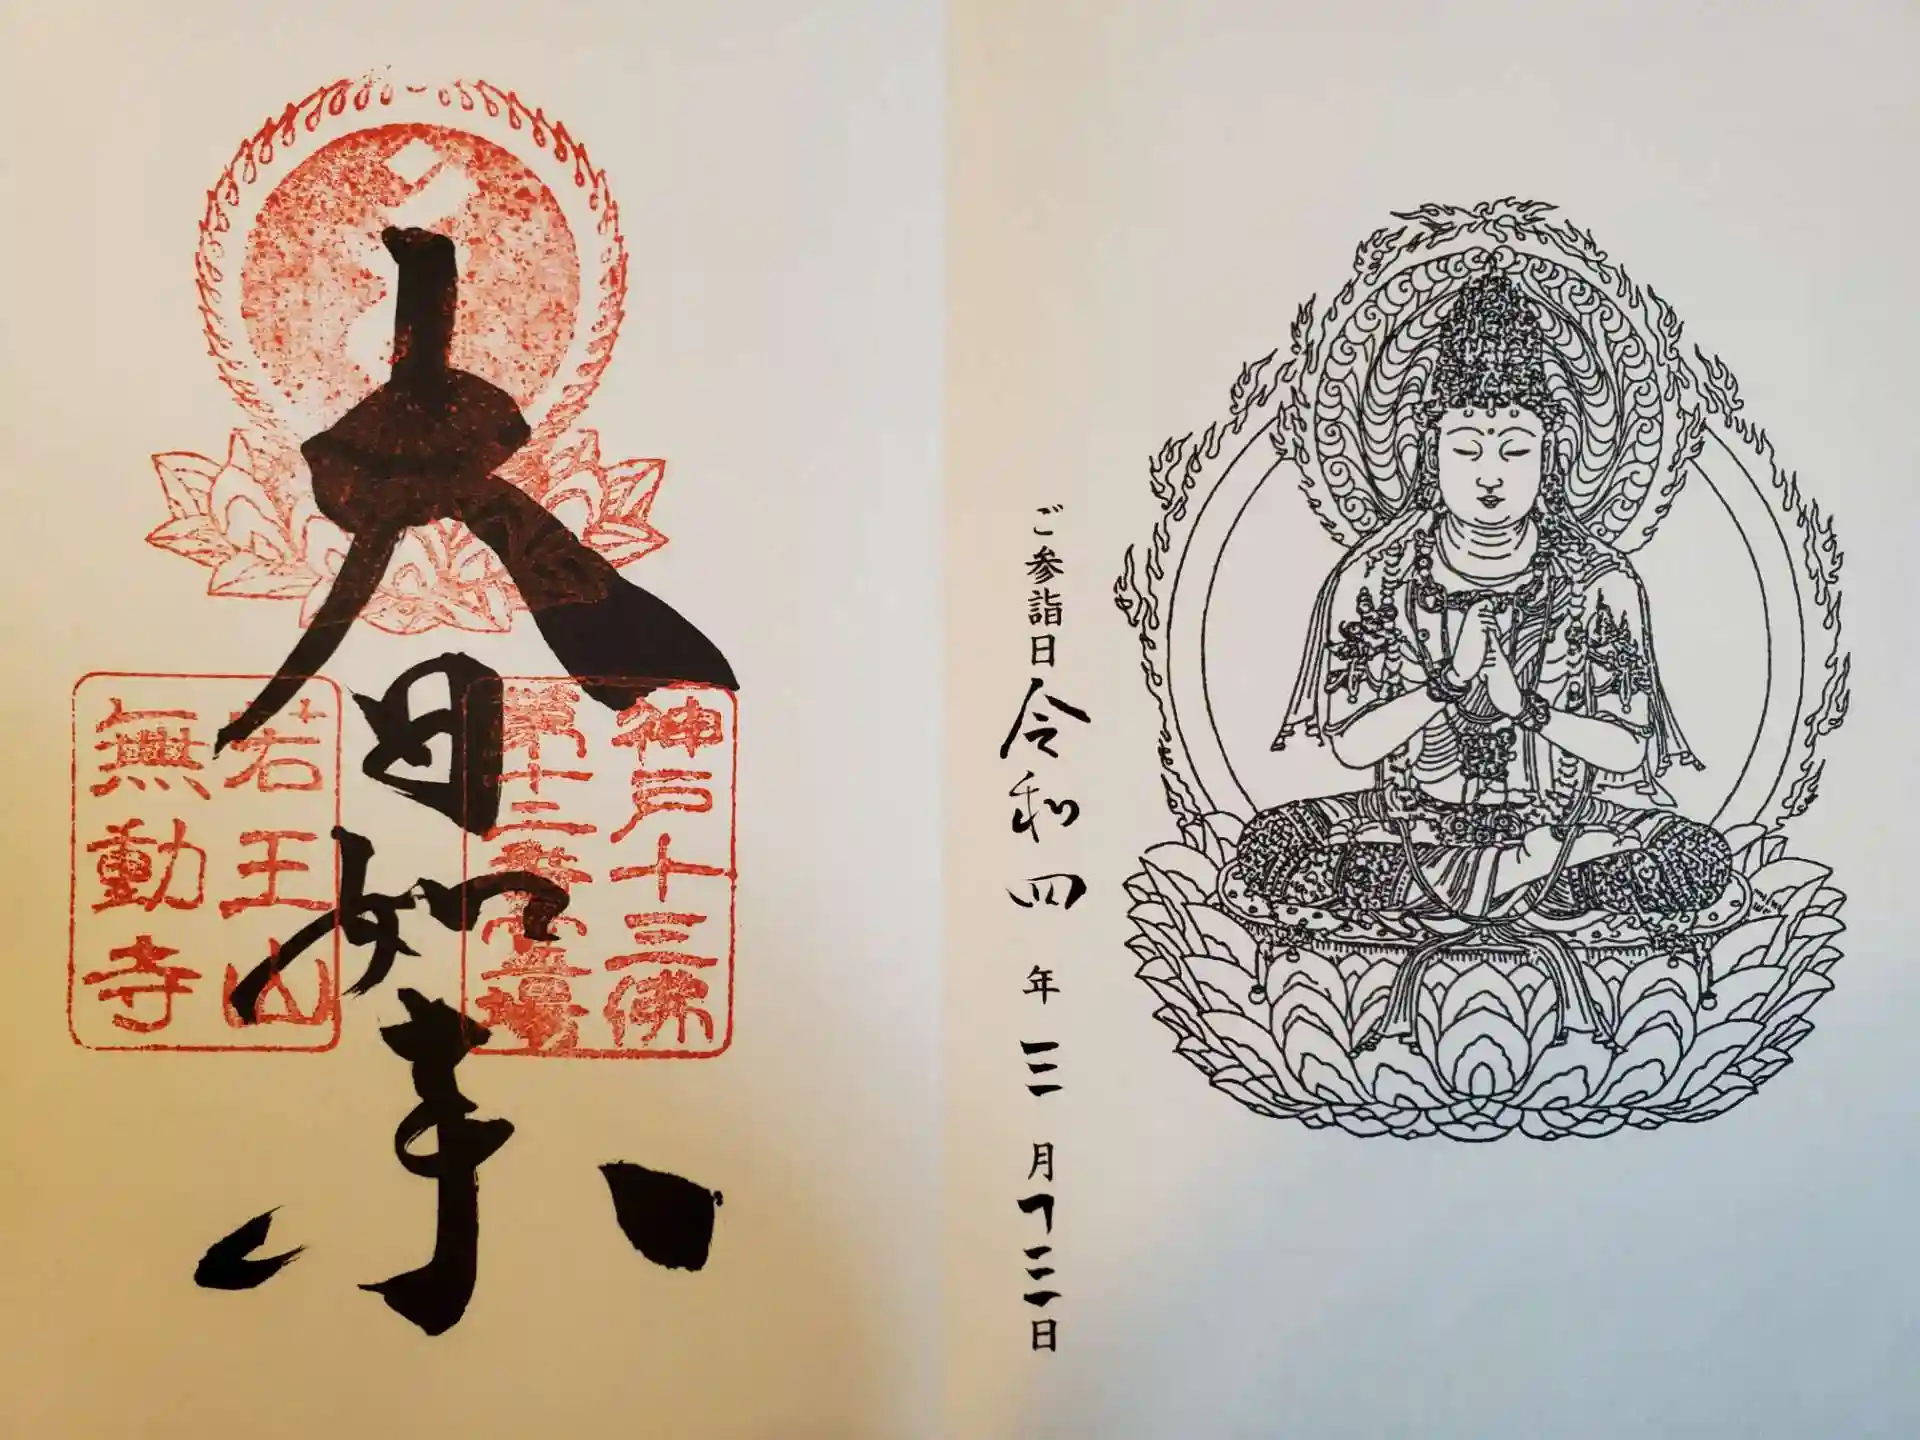 ご参詣日 令和四年三月十三日
大日如来
神戸十三佛
第十二番霊場
若王山
無動寺